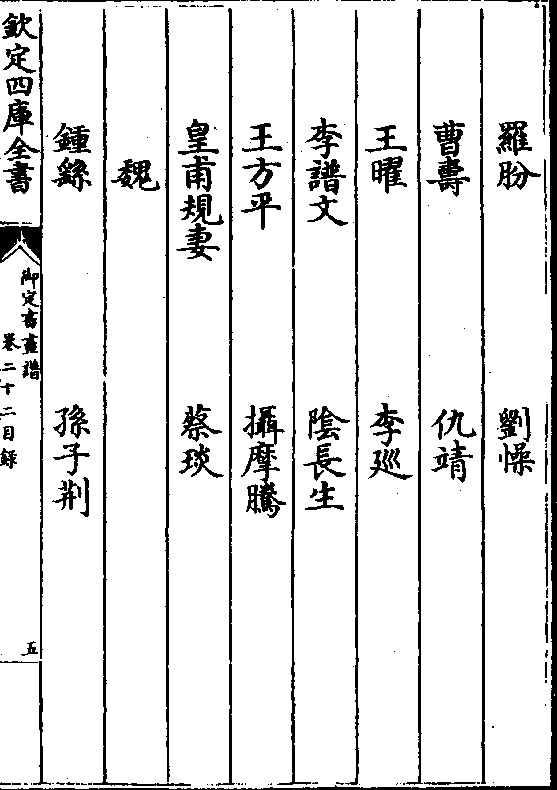 羅肦　劉懆
曹壽　仇靖
王曜　李㢟
李譜文　陰長生
王方平　攝摩騰
皇甫規妻　蔡琰
魏
鍾繇　孫子荆
欽定四庫全書
御定書畫譜
卷二十二目録
五